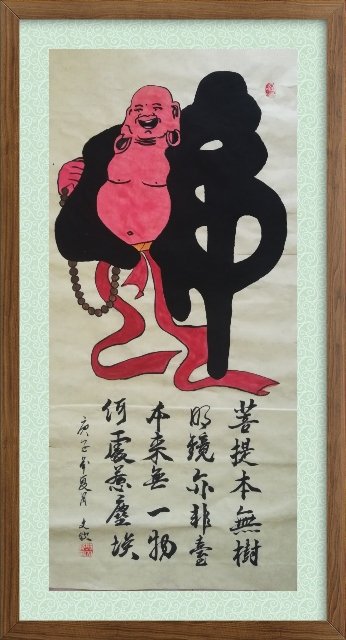 佛
菩提本無樹
明鏡亦非臺
本来無一物
何處惹塵埃
庚子 夏月 文